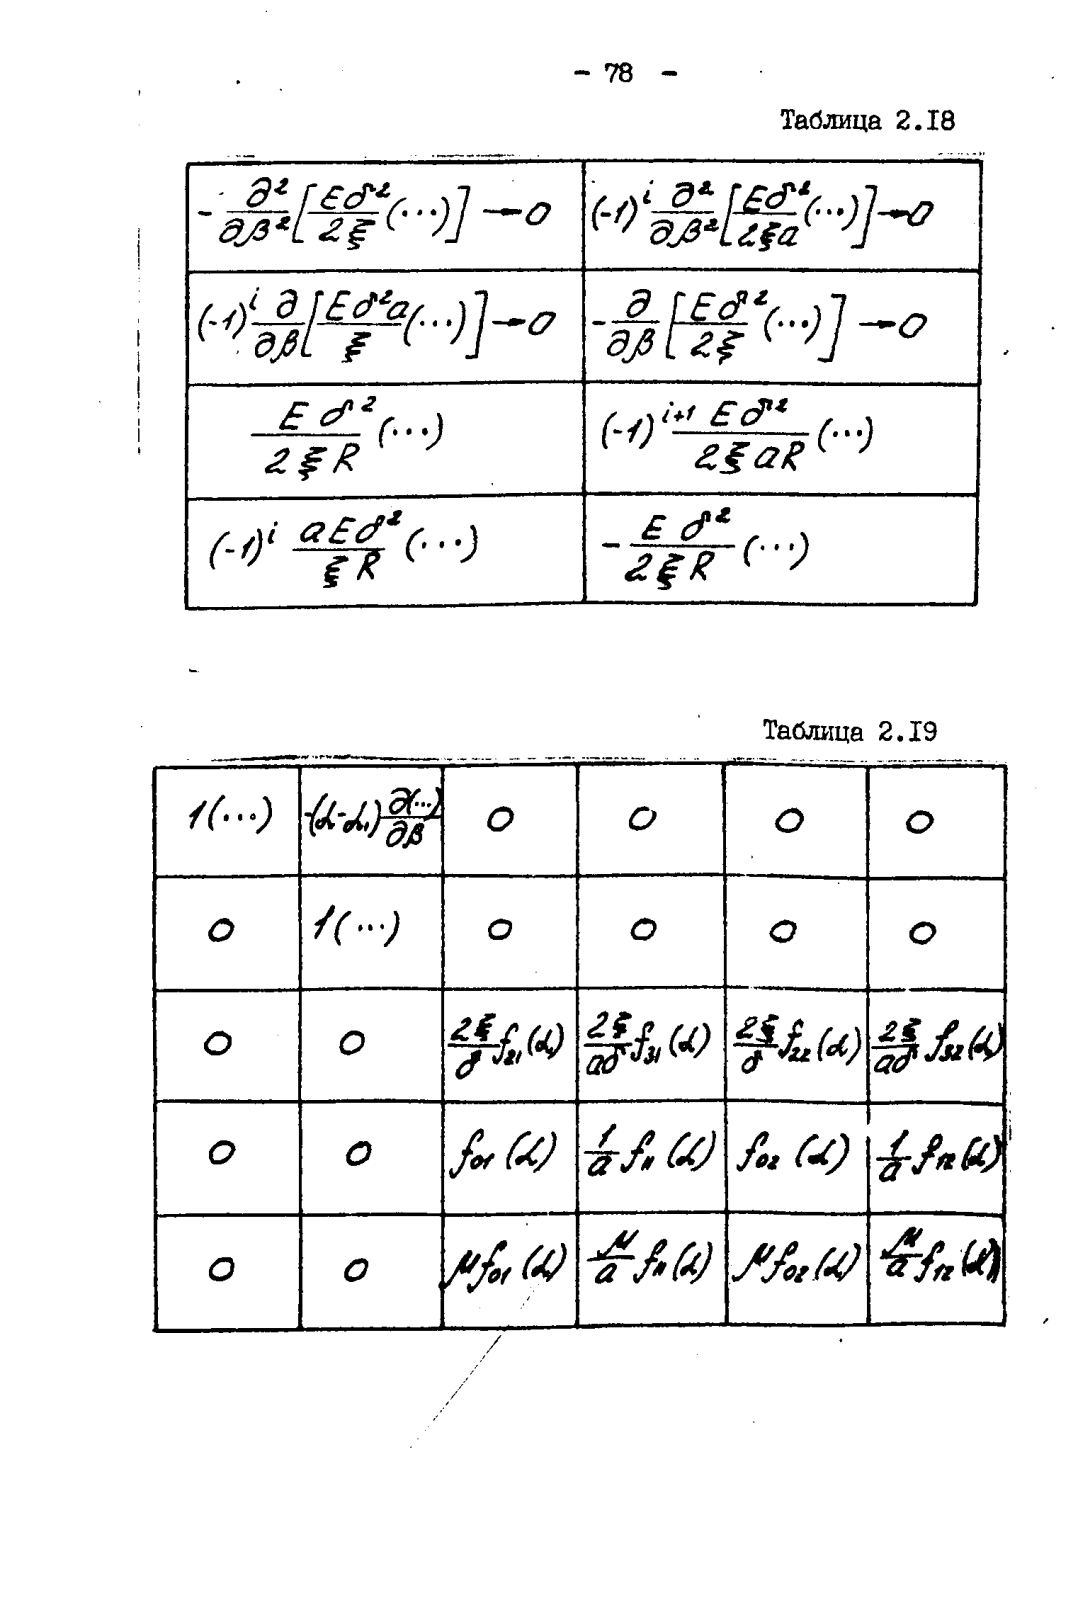 - 78 -
Таблица 2.18
-∂²/∂β² [Eδ²/2ξ (...)] → 0 (-1)ⁱ ∂²/∂β² [Eδ²/2ξa (...)] → 0
(-1)ⁱ ∂/∂β [Eδ²a/ξ (...)] → 0 -∂/∂β [Eδ²/2ξ (...)] → 0
Eδ²/2ξR (...) (-1)ⁱ⁺¹ Eδ²/2ξaR (...)
(-1)ⁱ aEδ²/ξR (...) -Eδ²/2ξR (...)
Таблица 2.19
1(...) -(α-α₁) ∂(...)/∂β 0 0 0 0
0 1(...) 0 0 0 0
0 0 2ξ/δ f₂₁(α) 2ξ/aδ f₃₁(α) 2ξ/δ f₂₂(α) 2ξ/aδ f₃₂(α)
0 0 f₀₁(α) 1/a f₁₁(α) f₀₂(α) 1/a f₁₂(α)
0 0 μf₀₁(α) μ/a f₁₁(α) μf₀₂(α) μ/a f₁₂(α)